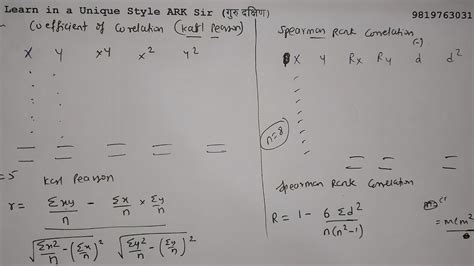 Learn in a Unique Style ARK Sir (गुरु दक्षिण) 9819763031
Coefficient of Corelation (Karl Pearson)
X Y XY X² Y²
=5 Karl Pearson
r = Σxy/n − Σx/n × Σy/n
√Σx²/n − (Σx/n)² √Σy²/n − (Σy/n)²
Spearman Rank Correlation
(-)
X Y Rx Ry d d²
n=8
Spearman Rank Correlation
R = 1 − 6 Σd²/n(n²−1)